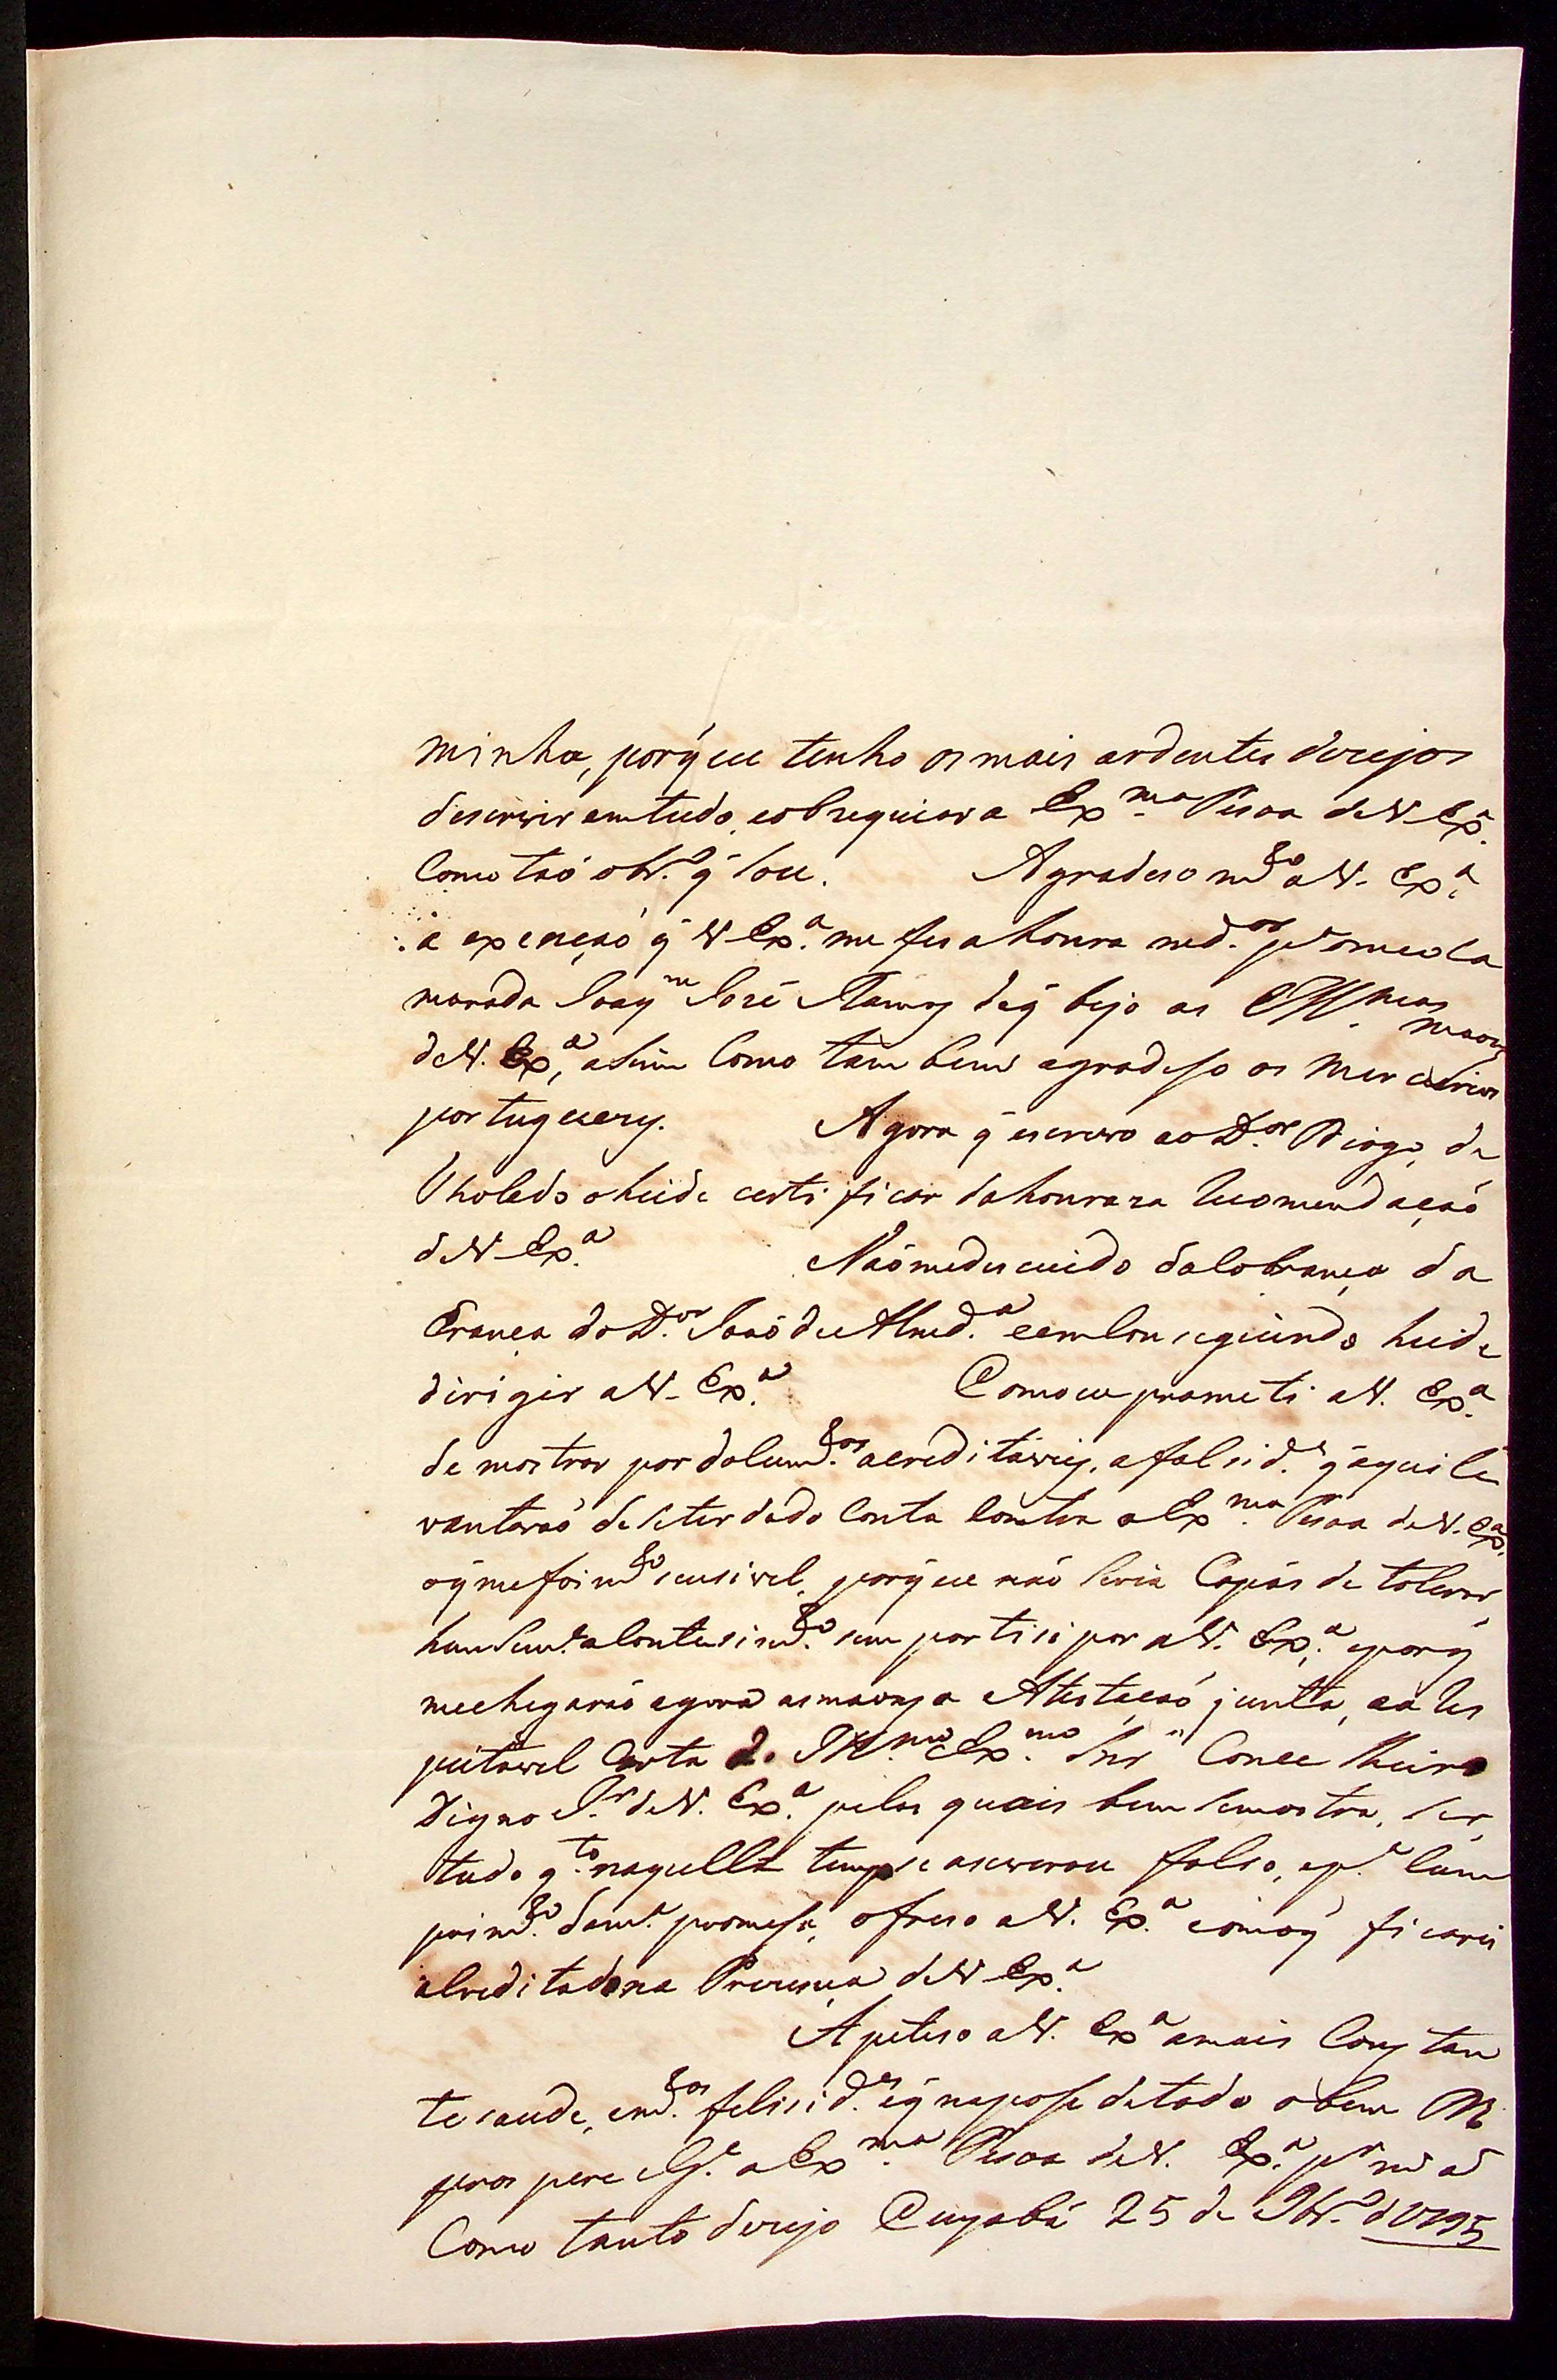 minha, porq̃ue tenho os mais ardentes dezejos
deservir emtudo, eobzequiar a Ex.ma Pesoa deV. Ex.a
Como taõ obr.o q̃ sou. Agradeso m.to aV. Ex.a
a expençaõ q̃ V Ex.a me fes ahonra
marada Joaq.m Jozé Ramos deq̃ bejo as maons
deV. Ex.a, asim Como tam bem agradeso os Mercurios
portuguezes. Agora q̃ escrevo ao D.or Diogo de
Tholedo oheide certificar dahonraza Recomendaçaõ
deV Ex.a Naõmedescuido daCobrança da
Erança do D.or Joaõ de Almd.a eemConseguindo heide
dirigir aV. Ex.a Comoeu prameti aV. Ex.a
de mostrar por doCum.tos acreditáveis, afalsid.e q̃ aqui le
vantaraõ de seter dado Conta Contra aEx.ma Pesoa deV. Ex.a
oq̃mefoi m.to sensivel, porq̃ue naõ seria Capás de tolerar
hum Sem.e aContesim.to sem partisipar aV. Ex.a, eporq̃
mechegaraõ agora asmaons a Atestaçaõ junta, eaRes
peitavel Carta do Ill.mo eEx.mo Snr̃ Concelheiro
Digno I.r deV. Ex.a pelos quais bem semostra, ser
tudo q.to naquelle tempo se aseverou falso, ep.a Cum
prim.to dam.a promesa, ofreso aV. Ex.a eomoq̃ ficarei
aCreditado na Prezença deV Ex.a
Apeteso aV. Ex.a amais Cons tan
te saude, em.tas felisid.es eq̃ napose detodo obem
pros pere eG.e aEx.ma Pesoa deV. Ex.a p.r
Como tanto dezejo Cuyabá 25 de 9br.o d1795